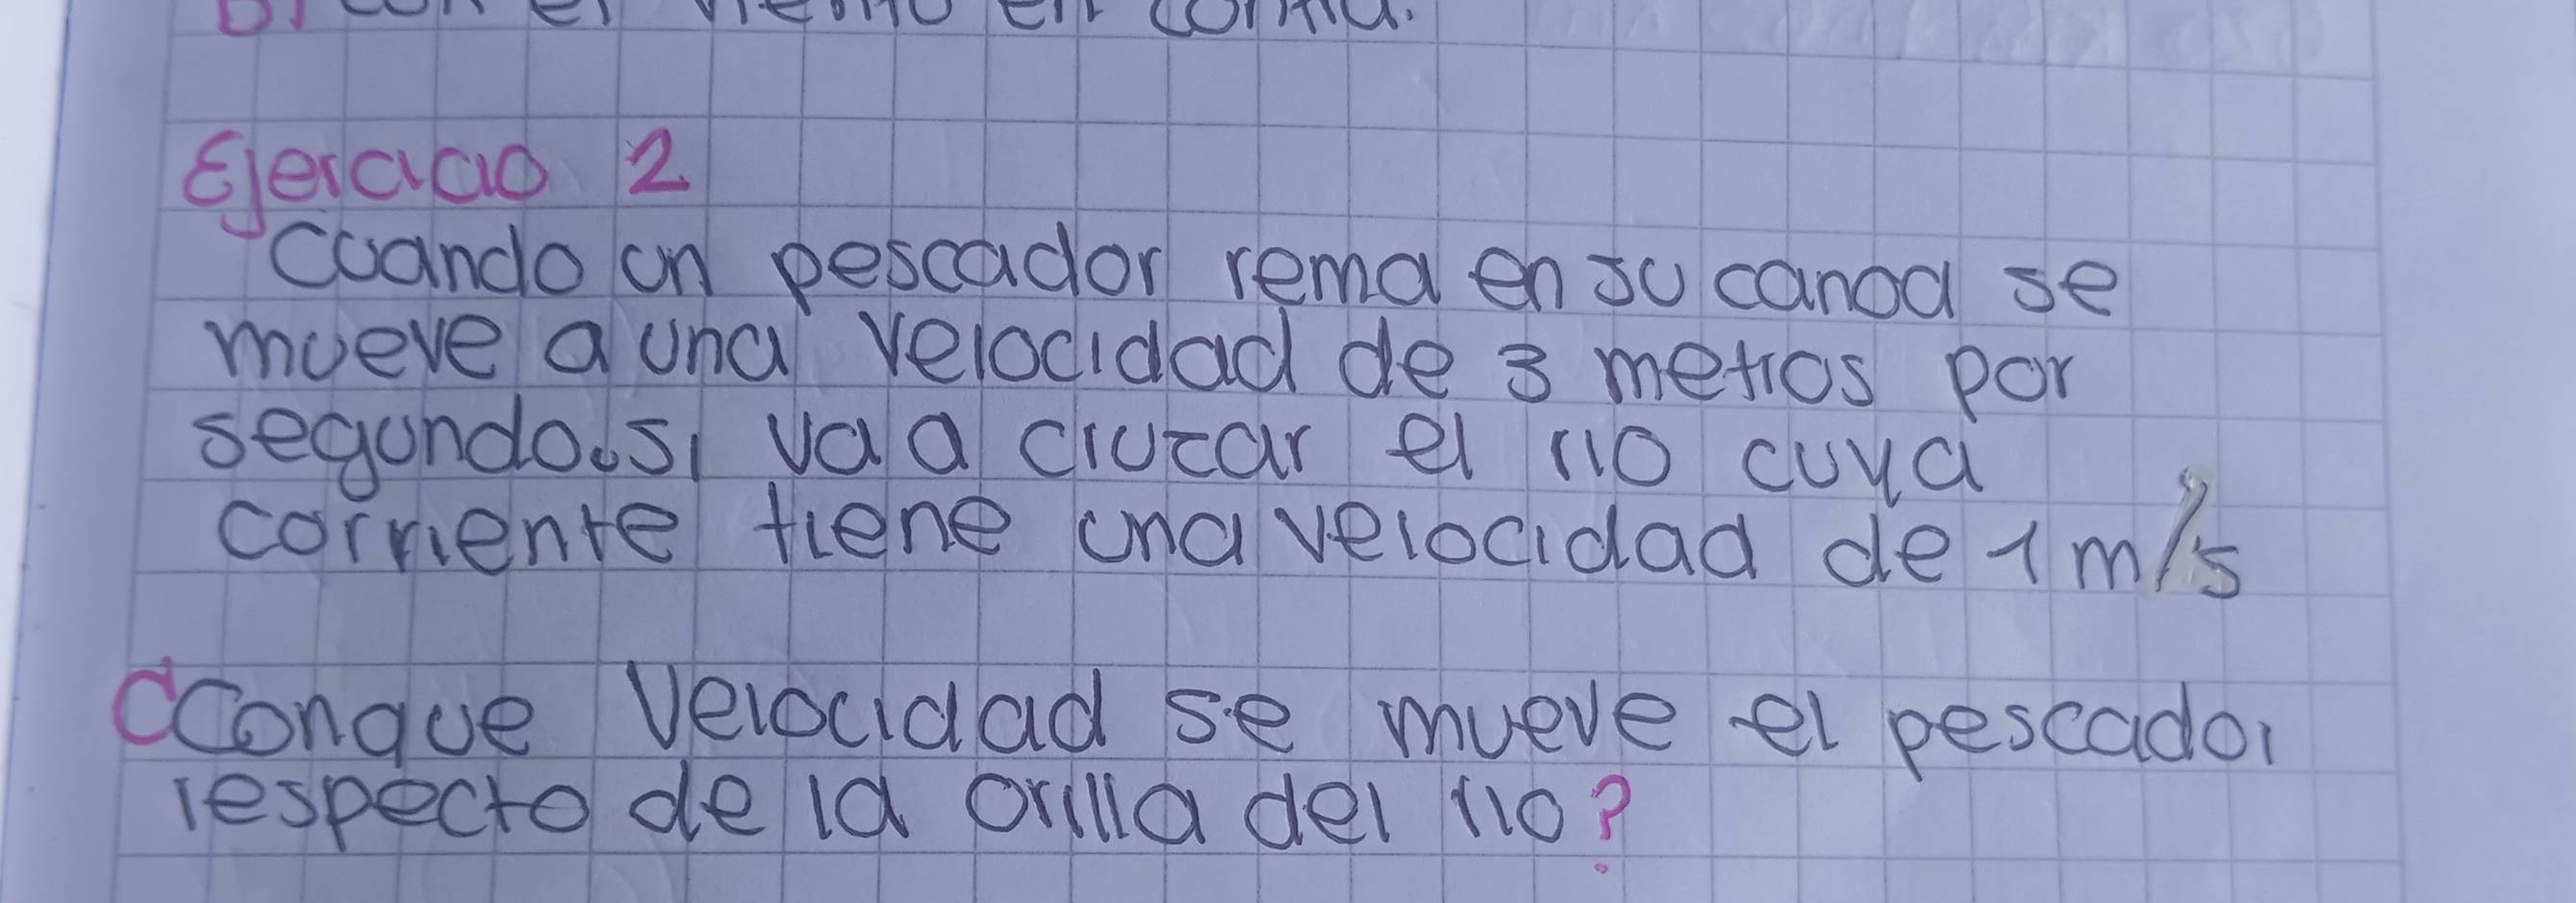 b) con el viento en contra.
Ejercicio 2
Cuando un pescador rema en su canoa se
mueve a una velocidad de 3 metros por
segundo. si va a cruzar el rio cuya
corriente tiene una velocidad de 1 m/s
¿Conque velocidad se mueve el pescador
respecto de la orilla del rio?